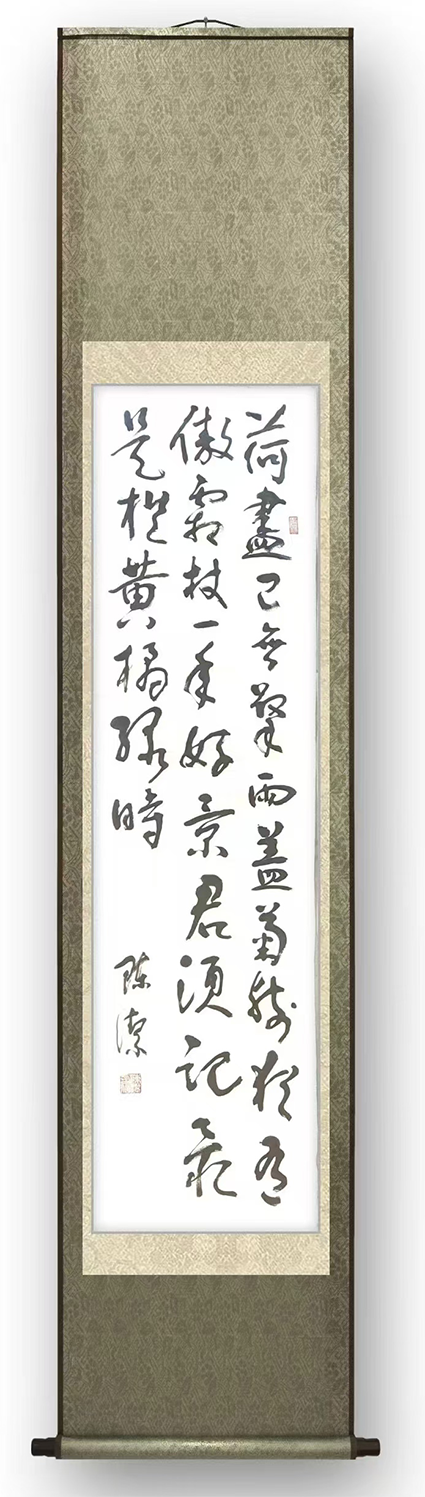 荷盡已無擎雨盖菊殘猶有
傲霜枝一年好景君須記最
是橙黄橘緑時
陈潔